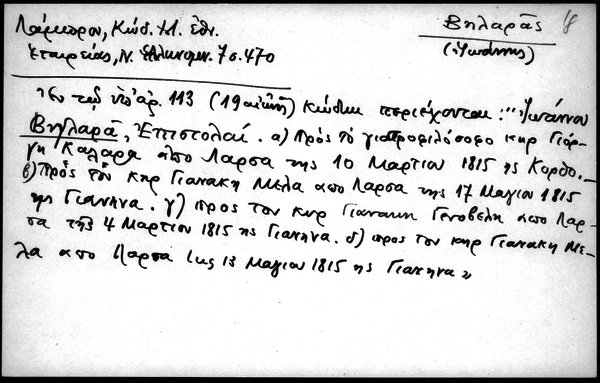 Λάμπρου, Κώδ. Ἱστ. ἐθν.
Ἑταιρείας, Ν. Ἑλληνομν. 7 σ. 470
Βηλαρᾶς
(Ἰωάννης)
Ἐν τῷ ὑπ' ἀρ. 113 (19 αἰών.) κώδικι περιέχονται: "Ἰωάννου
Βηλαρᾶ, Ἐπιστολαί. α) πρὸς τὸ γιατροφιλόσοφο κηρ Γιόρ-
γη Καλαρᾶ απο Λαρσα της 10 Μαρτιου 1815 ης Κορφο.
β) Πρὸς τὸν κηρ Γιανακη Μελα απο Λαρσα της 17 Μαγιου 1815
ης Γιανηνα. γ) προς τον κυρ Γιανακη Γενοβελη απο Λαρ-
σα τῆς 4 Μαρτιου 1815 ης Γιανηνα. δ) προς τον κηρ Γιανακη Με-
λα απο Λαρσα της 13 Μαγιου 1815 ης Γιανηνα "